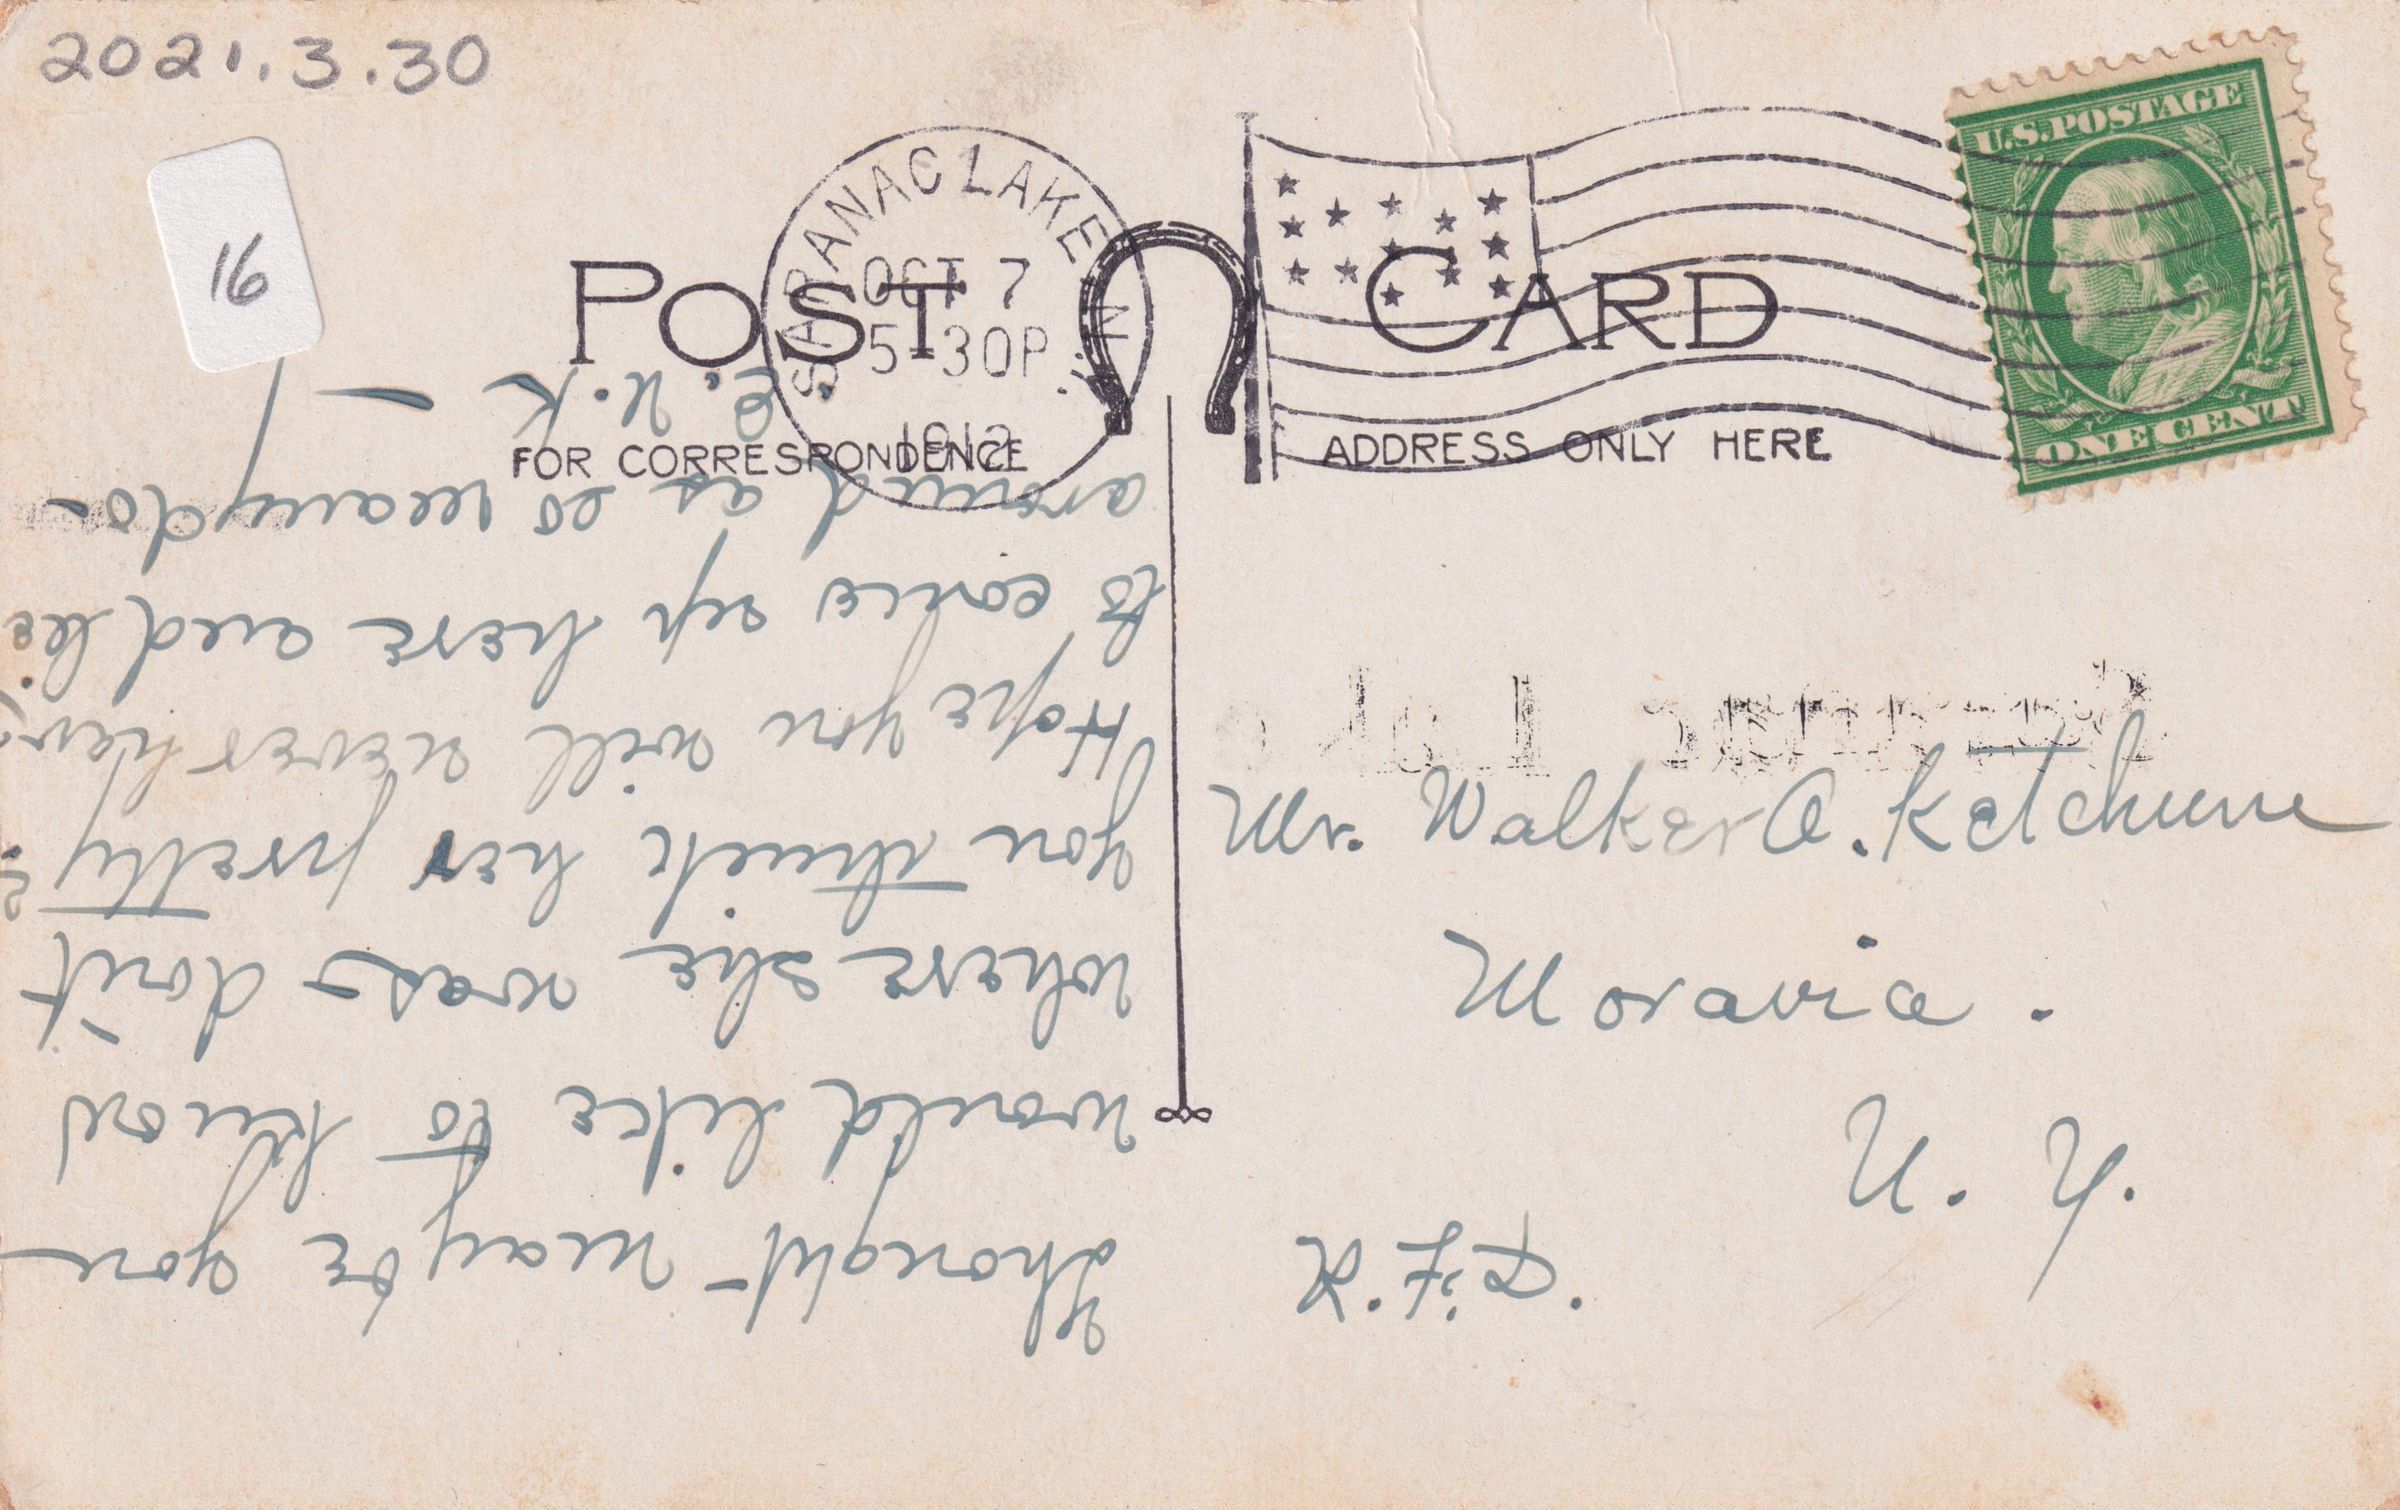 2021.3.30
16
SARANAC LAKE N.Y.
OCT 7
5-30P
1912
U.S.POSTAGE
ONE CENT
POST CARD
FOR CORRESPONDENCE
ADDRESS ONLY HERE
Mr. Walker A. Ketchum
Moravia.
N. Y.
Thought maybe you
would like to know
where she was - don't
you think her pretty
Hope you will never have
to come up here and lie
around as so many do -
E. U. K -